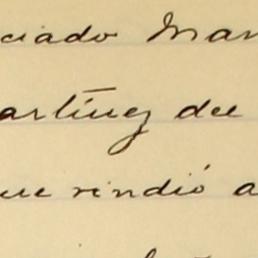 ciado Man
artínez del
que rindió a